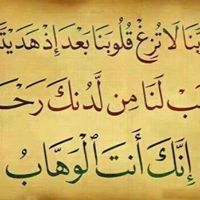 بَّنَا لَا تُزِغْ قُلُوبَنَا بَعْدَ إِذْ هَدَيْتَ
بْ لَنَا مِن لَّدُنكَ رَحْ
إِنَّكَ أَنتَ ٱلْوَهَّابُ